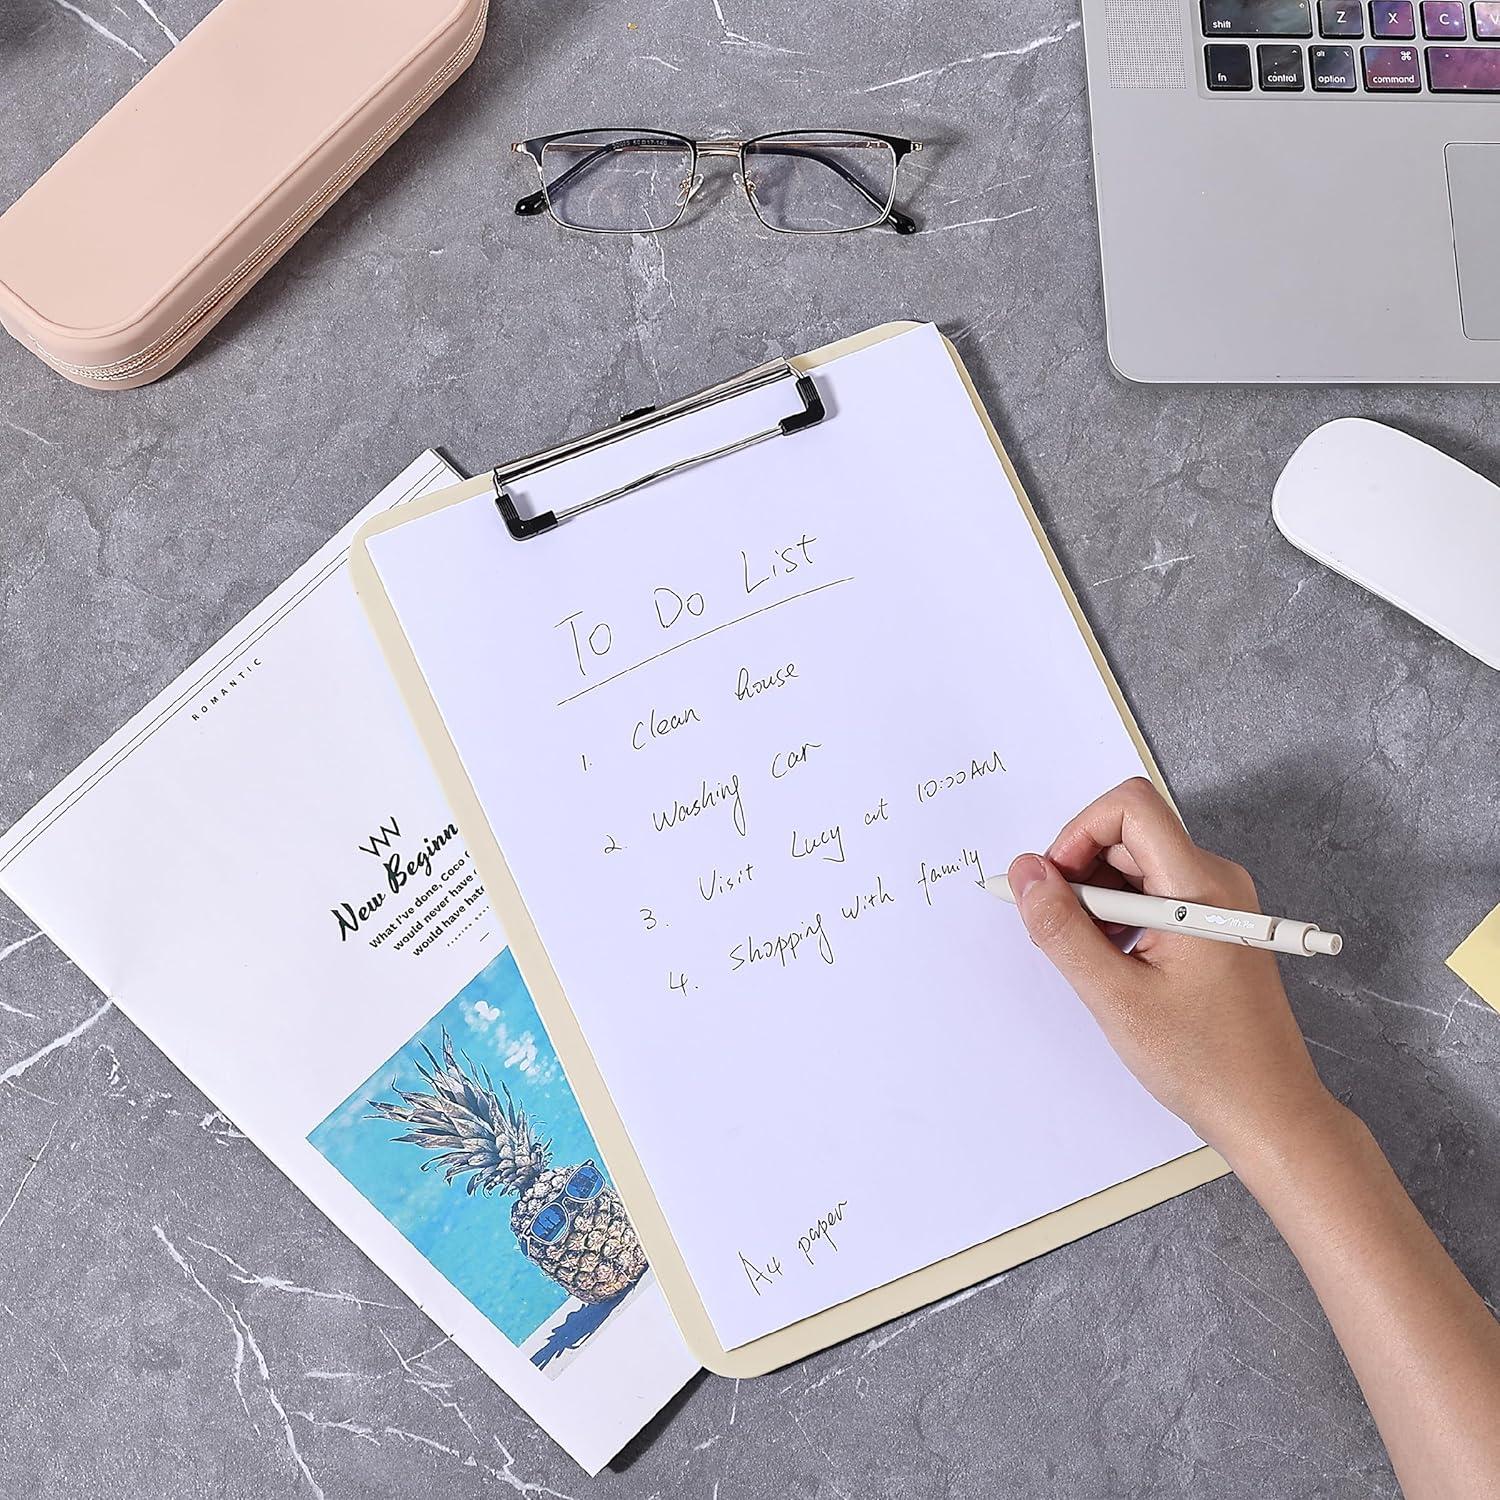 shift
Z
X
C
V
fn
control
alt
option
⌘
command
To Do List
1. Clean house
2. Washing car
3. Visit Lucy at 10:00AM
4. Shopping with family
A4 paper
ROMANTIC
New Beginn
What I've done, Coco
would never have
would have hatr